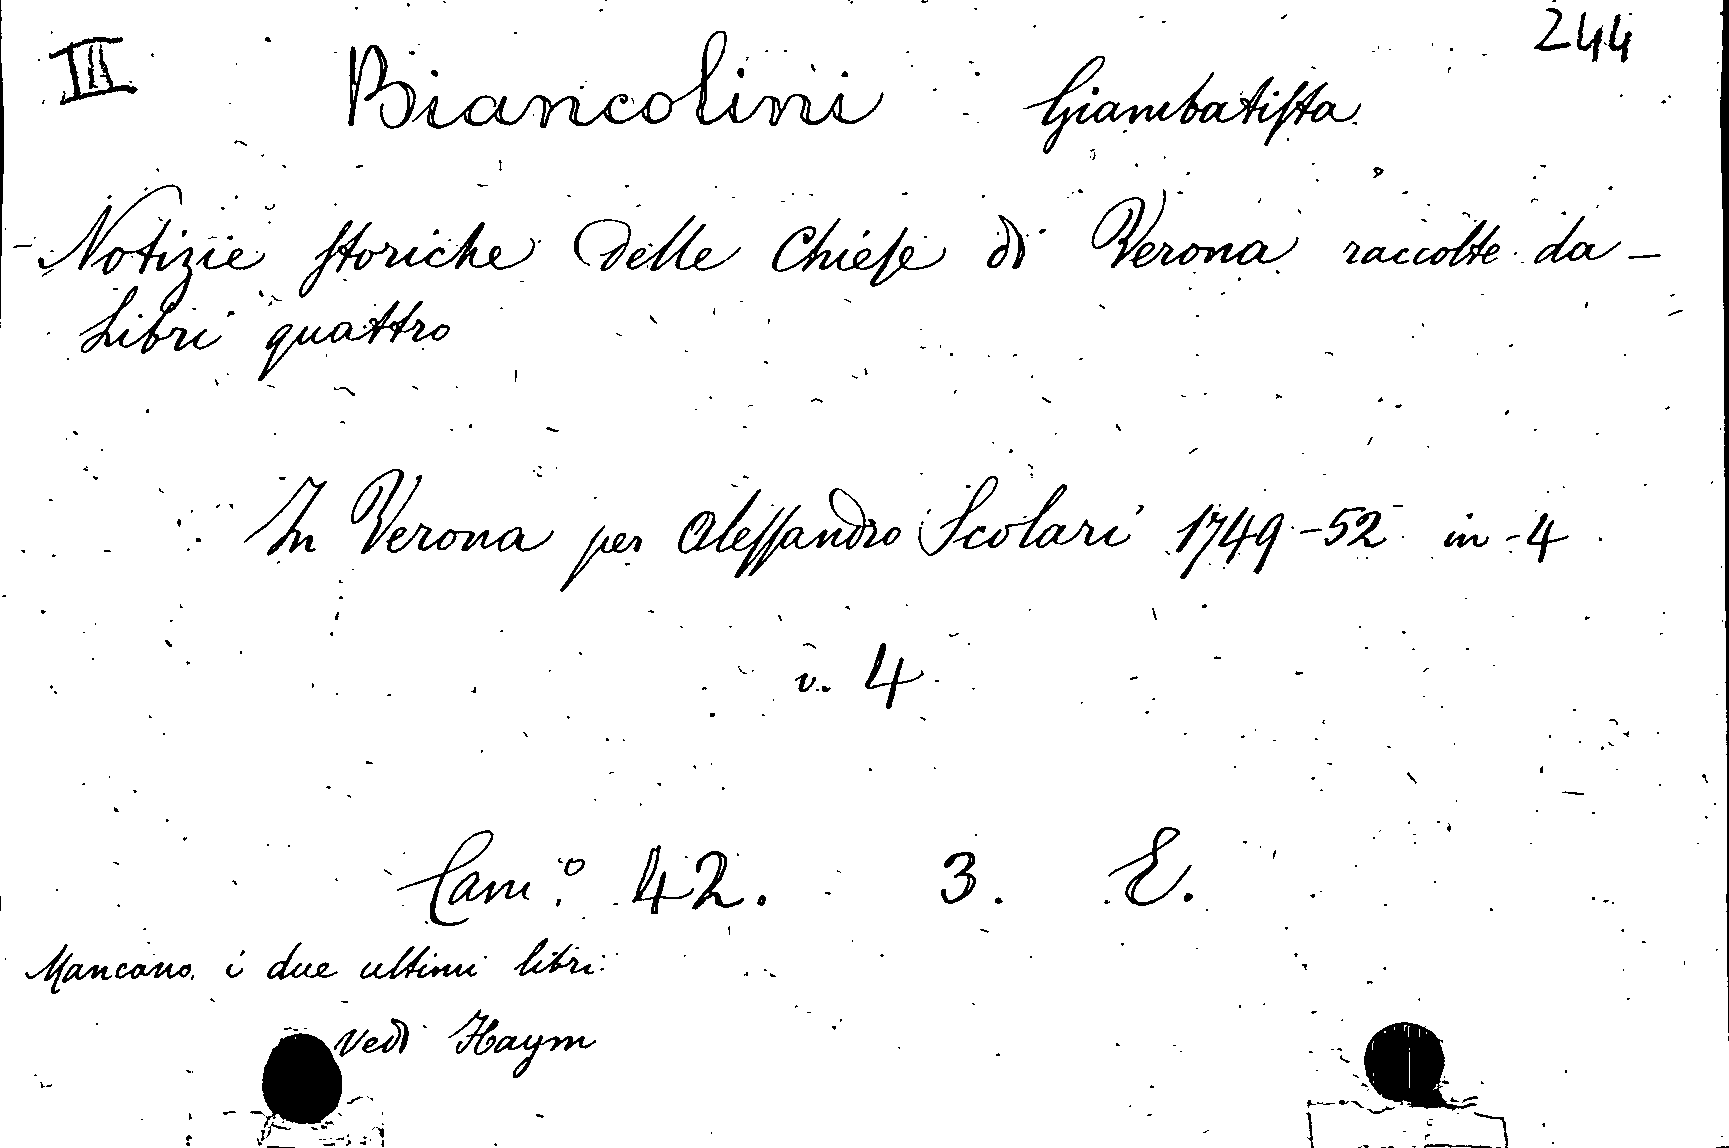 III Biancolini Giambatiſta 244
Notizie ſtoriche delle Chieſe di Verona raccolte da –
Libri quattro
In Verona per Aleſſandro Scolari 1749-52 in-4
v. 4
Cam.º 42. 3. E.
Mancano i due ultimi libri
Vedi Haym